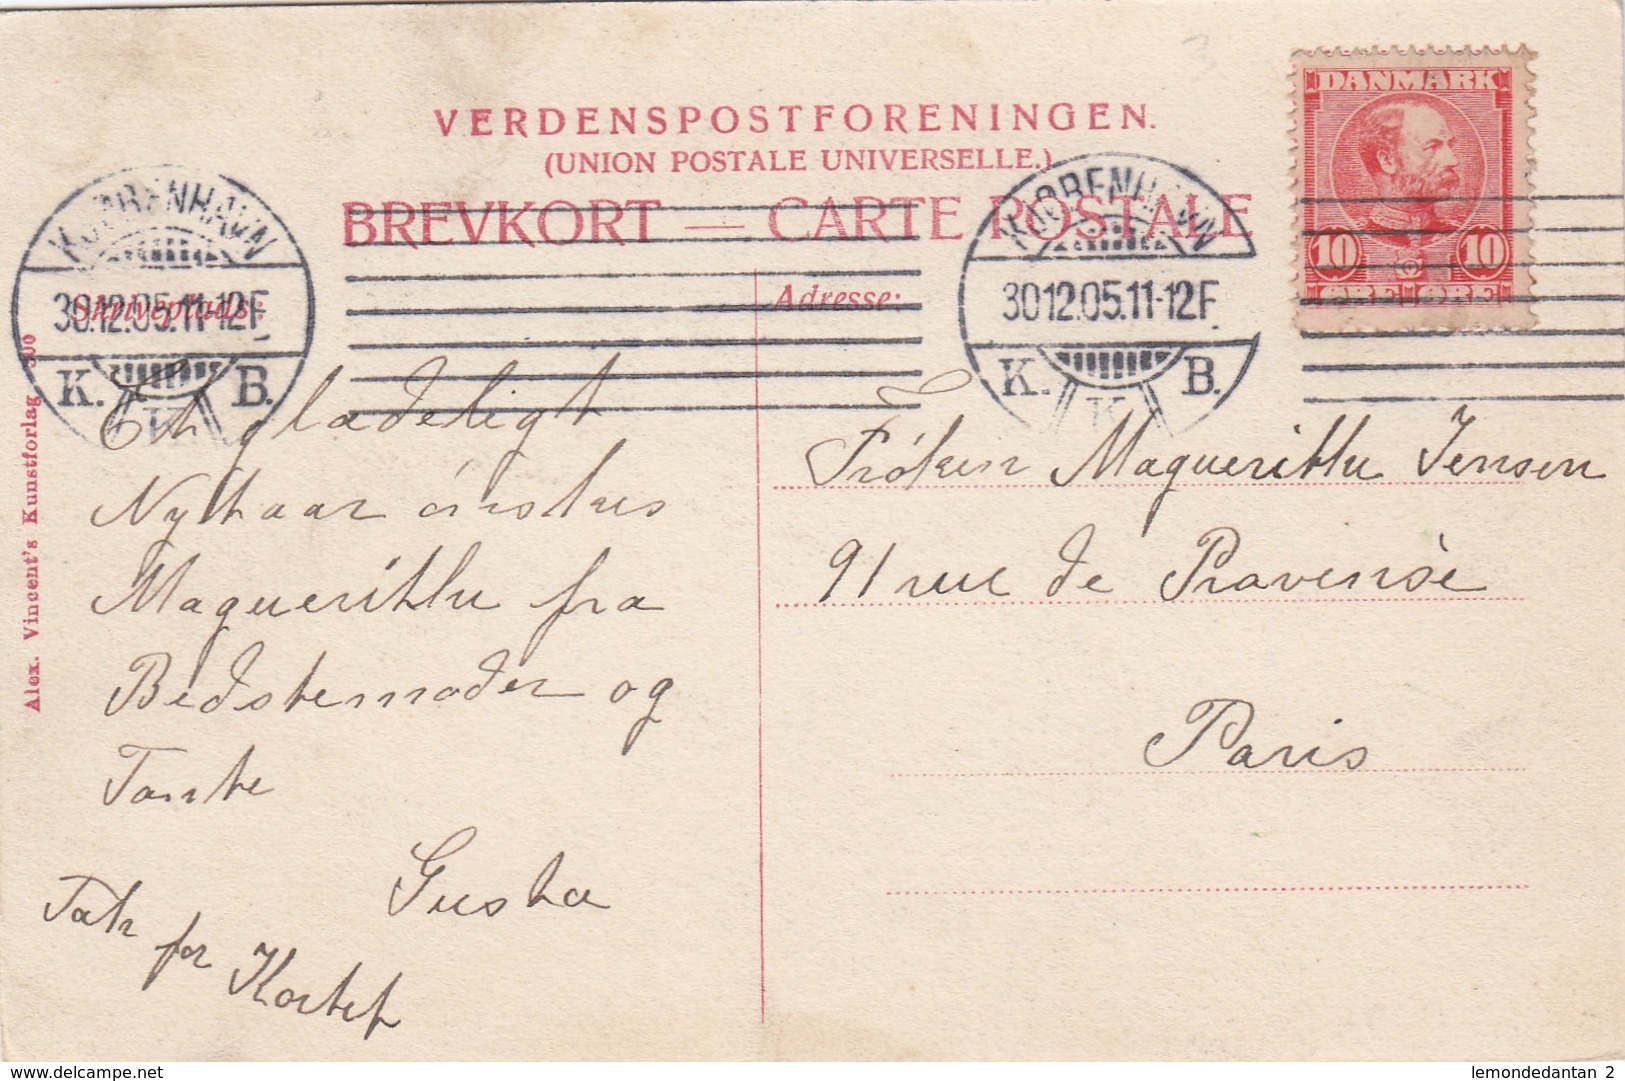 VERDENSPOSTFORENINGEN.
(UNION POSTALE UNIVERSELLE.)
BREVKORT — CARTE POSTALE
DANMARK
10 10
ØRE ØRE
KJØBENHAVN
30.12.05.11-12F.
K. B.
K
KJØBENHAVN
30.12.05.11-12F.
K. B.
K
Skriveplads:
Adresse:
Alex. Vincent's Kunstforlag 300
Et glædeligt
Nytaar ønskes
Magueritte fra
Bedstemoder og
Tante
Gusta
Tak for Kortet
Frøken Magueritte Jensen
91 rue de Provensè
Paris
www.delcampe.net
lemondedantan 2